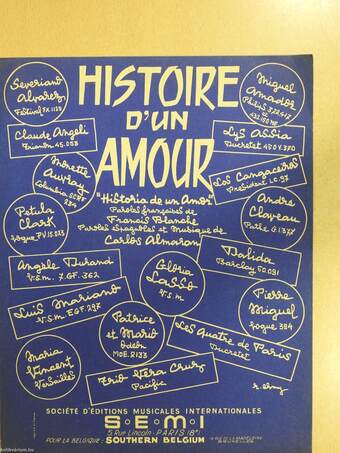 HISTOIRE
D'UN
AMOUR
"Historia de un Amor"
Paroles françaises de
Francis Blanche
Paroles espagnoles et Musique de
Carlos Almaran
Severiano
Alvarez
Festival FX 1128
Miguel
Amador
Philips 372.417
et
432.130 NE
Claude Angeli
Trianon 45.053
Lys Assia
Ducretet 470 V 370
Ninette
Auvray
Columbia SCRF
234
Los Cangaceiros
Président LC.37
Petula
Clark
Vogue PV 15.023
André
Claveau
Pathé G.1377
Angèle Durand
V.S.M. 7.GF.362
Dalida
Barclay 60.091
Gloria
Lasso
V.S.M.
Luis Mariano
V.S.M. EGF.297
Pierre
Miguel
Vogue 384
Patrice
et Mario
Odéon
MOE.2133
Les Quatre de Paris
Ducretet
Maria
Vincent
Versailles
Trio Vera Cruz
Pacific
SOCIÉTÉ D'ÉDITIONS MUSICALES INTERNATIONALES
S.E.M.I
5, Rue Lincoln - PARIS 18ᵉ
POUR LA BELGIQUE : SOUTHERN BELGIUM
BRUXELLES